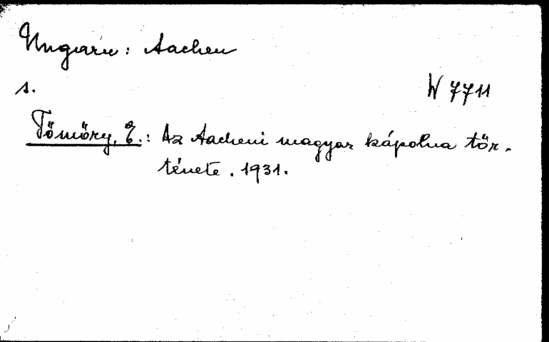 Ungarn: Aachen
s.
W 7711
Tömöry, E.: Az Aacheni magyar kápolna tör-
ténete. 1931.